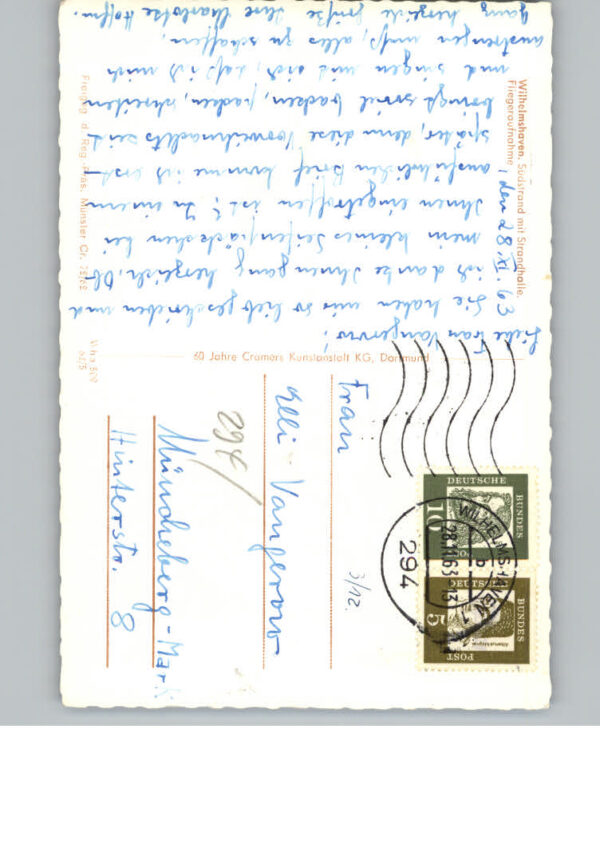 Wilhelmshaven. Südstrand mit Strandhalle.
Fliegeraufnahme
, den 28. XI. 63
Liebe Frau Vangerow!
Sie haben mir so lieb geschrieben und
ich danke Ihnen ganz herzlich. Ob
mein kleines Seifenpäckchen bei
Ihnen eingetroffen ist? Zu einem
ausführlichen Brief komme ich erst
später, denn diese Vorweihnachtszeit
bringt soviel backen, packen, schreiben
und singen mit sich, daß ich mich
anstrengen muß, alles zu schaffen.
Ganz herzliche Grüße Ihre Charlotte Hoffm.
Freigeg. d. Reg. Präs. Münster Cr.
60 Jahre Cramers Kunstanstalt KG, Dortmund
Frau
Elli Vangerow
Müncheberg-Mark
Hinterstr. 8
294
3/12.
DEUTSCHE
BUNDES
POST
10
DEUTSCHE
BUNDES
POST
5
WILHELMSHAVEN 1
28.XI.63-13
b
294